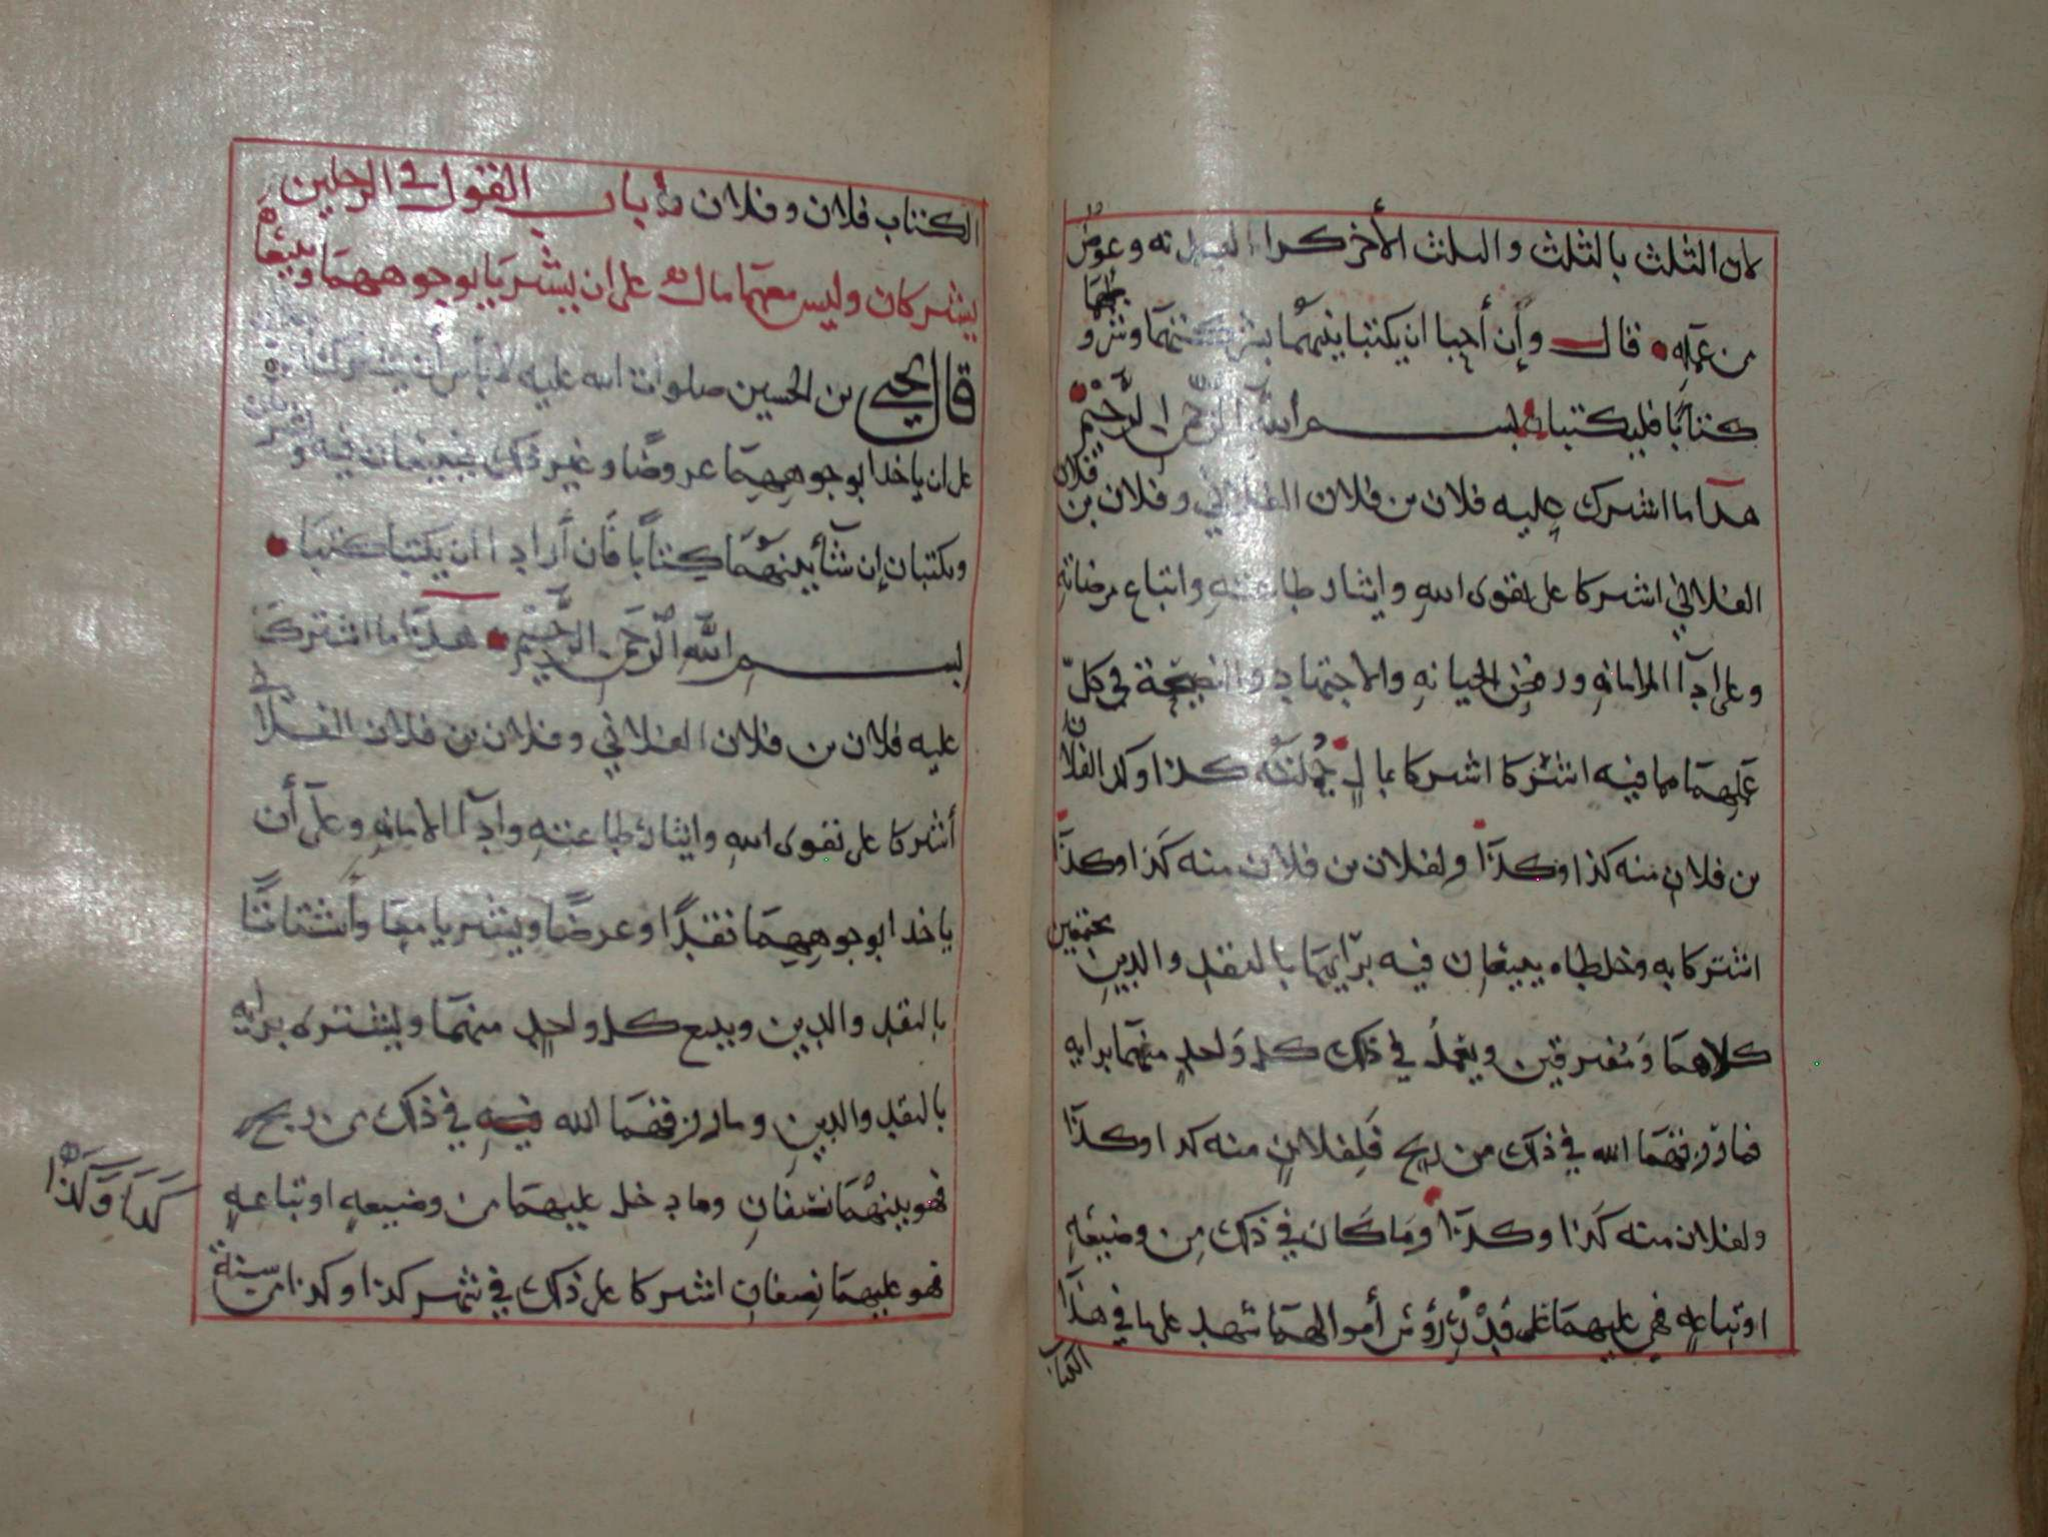 لان الثلث بالثلث والثلث الأخر كراء وعوض
من عمله قال وإن أحبا ان يكتبا بينهما بشركتهما وشروطهما
كتابًا فليكتبا بسم الله الرحمن الرحيم
هذا ما اشترك عليه فلان بن فلان الفلاني وفلان بن فلان
الفلاني اشتركا على تقوى الله وايثار طاعته واتباع مرضاته
وعلى ادآ الامانه ورفض الخيانه والاجتهاد والنصيحة في كل
عليهما مما فيه اشتركا اشتركا بمال جملته كذا وكذا لفلان
بن فلان منه كذا وكذا ولفلان بن فلان منه كذا وكذا
اشتركا به وخلطاه يبيعان فيه برايهما بالنقد والدين مجتمعين
كلاهما ومفترقين ويعمل في ذلك كل واحد منهما برايه
فما رزقهما الله في ذلك من ربح فلفلان منه كذا وكذا
ولفلان منه كذا وكذا وما كان في ذلك من وضيعه
او تباعه فهي عليهما على قدر رؤس أموالهما شهد على ما في هذا
الكتاب
الكتاب فلان وفلان باب القول في الرجلين
يشتركان وليس معهما مال على ان يشتريا بوجوههما ويبيعا
قال يحيى بن الحسين صلوات الله عليه لا بأس أن يشترك
على ان ياخذا بوجوههما عروضًا وغير ذلك يبيعان فيه
ويكتبان إن شآ بينهما كتابًا فان أرادا ان يكتبا كتبا
بسم الله الرحمن الرحيم هذا ما اشترك
عليه فلان بن فلان الفلاني وفلان بن فلان الفلاني
أشتركا على تقوى الله وايثار طاعته وادآ الامانه وعلى أن
ياخذا بوجوههما نقدًا وعرضًا ويشتريا معا وأشتاتًا
بالنقد والدين ويبيع كل واحد منهما ويشتره برايه
بالنقد والدين وما رزقهما الله فيه في ذلك من ربح
فهو بينهما نصفان وما دخل عليهما من وضيعه او تباعه
فهو عليهما نصفان اشتركا على ذلك في شهر كذا وكذا من سنة
كذا وكذا